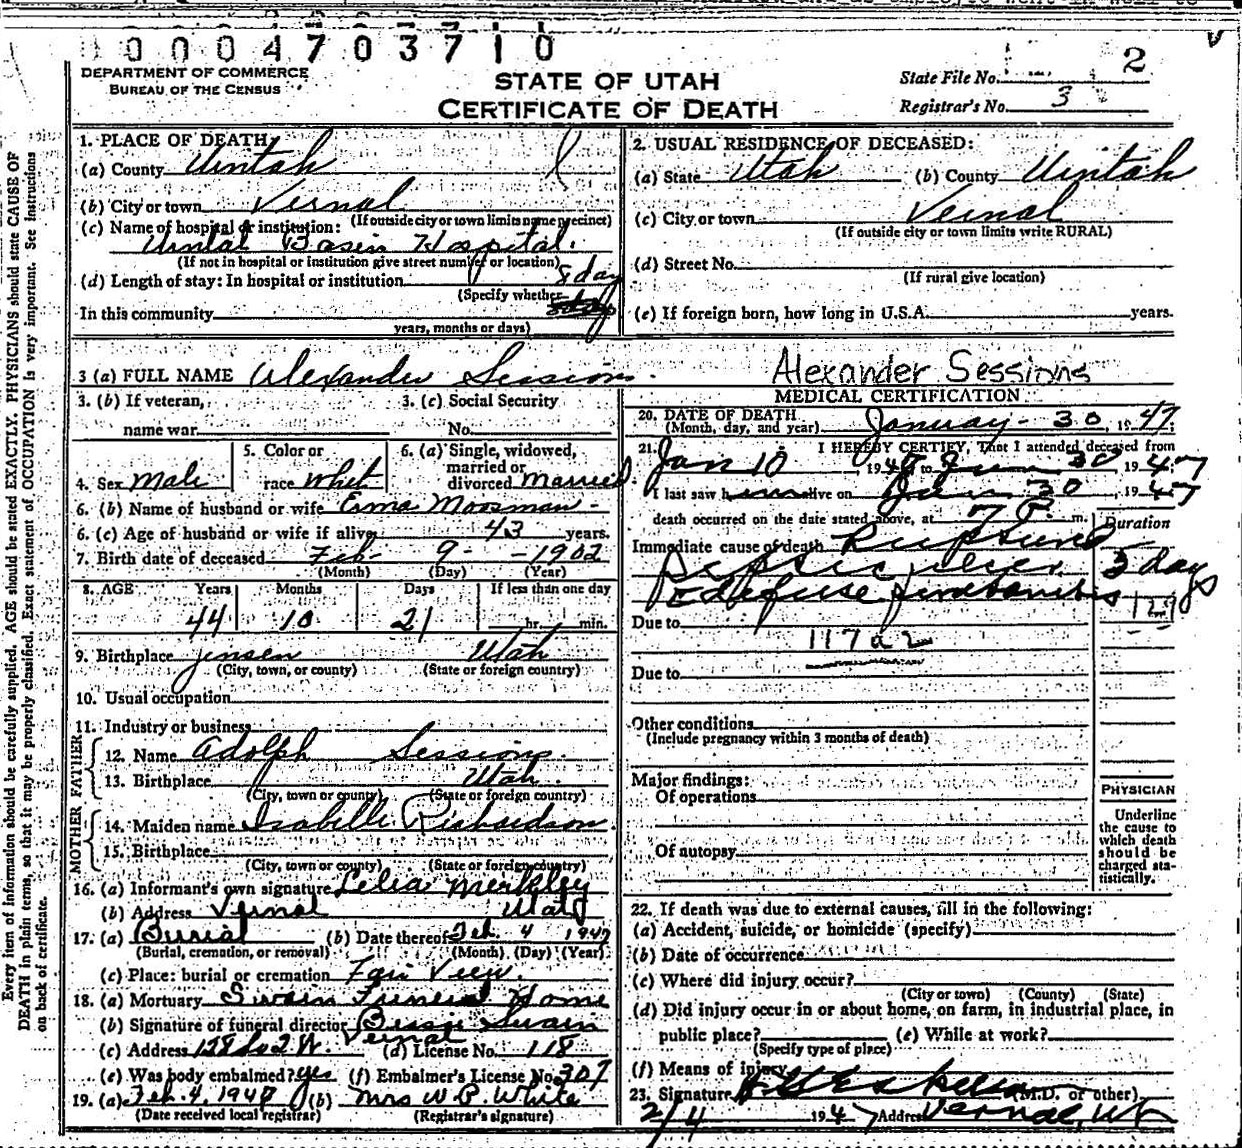 0004703710
DEPARTMENT OF COMMERCE
BUREAU OF THE CENSUS
STATE OF UTAH
CERTIFICATE OF DEATH
State File No. 2
Registrar's No. 3
Every item of information should be carefully supplied. AGE should be stated EXACTLY. PHYSICIANS should state CAUSE OF
DEATH in plain terms, so that it may be properly classified. Exact statement of OCCUPATION is very important. See instructions
on back of certificate.
1. PLACE OF DEATH
(a) County Uintah
(b) City or town Vernal
(If outside city or town limits name precinct)
(c) Name of hospital or institution:
Uintah Basin Hospital.
(If not in hospital or institution give street number or location)
(d) Length of stay: In hospital or institution 8 day
(Specify whether
In this community
years, months or days)
2. USUAL RESIDENCE OF DECEASED:
(a) State Utah (b) County Uintah
(c) City or town Vernal
(If outside city or town limits write RURAL)
(d) Street No.
(If rural give location)
(e) If foreign born, how long in U.S.A. years.
3 (a) FULL NAME Alexander Sessions.
3. (b) If veteran, name war
3. (c) Social Security No.
4. Sex Male
5. Color or race whit
6. (a) Single, widowed, married or divorced married.
6. (b) Name of husband or wife Erma Moosman -
6. (c) Age of husband or wife if alive 43 years.
7. Birth date of deceased Feb- 9- -1902
(Month) (Day) (Year)
8. AGE Years Months Days If less than one day
44 10 21 hr. min.
9. Birthplace Jensen Utah
(City, town, or county) (State or foreign country)
10. Usual occupation
11. Industry or business
FATHER
12. Name Adolph Sessions
13. Birthplace Utah.
(City, town or county) (State or foreign country)
MOTHER
14. Maiden name Isabelle Richardson.
15. Birthplace
(City, town or county) (State or foreign country)
16. (a) Informant's own signature Lelia Merkley
(b) Address Vernal Utah
17. (a) Burial (b) Date thereof Feb. 4 1947
(Burial, cremation, or removal) (Month) (Day) (Year)
(c) Place: burial or cremation Fair View.
18. (a) Mortuary Swain Funeral Home
(b) Signature of funeral director Bessie Swain
Vernal
(c) Address 128 So 2 W. (d) License No. 118
(e) Was body embalmed? yes (f) Embalmer's License No. 307
19. (a) Feb. 4, 1947 (b) Mrs W. P. White
(Date received local registrar) (Registrar's signature)
Alexander Sessions
MEDICAL CERTIFICATION
20. DATE OF DEATH
(Month, day, and year) January - 30, 1947;
21. I HEREBY CERTIFY, That I attended deceased from
Jan 10 19 to 30 1947
I last saw him alive on Jan 30 1947
death occurred on the date stated above, at 7 P. m.
Duration
Immediate cause of death Ruptured
Peptic ulcer 3 days
129
Due to
117a2
Due to
Other conditions
(Include pregnancy within 3 months of death)
Major findings:
Of operations
Of autopsy
PHYSICIAN
Underline
the cause to
which death
should be
charged sta-
tistically.
22. If death was due to external causes, fill in the following:
(a) Accident, suicide, or homicide (specify)
(b) Date of occurrence
(c) Where did injury occur?
(City or town) (County) (State)
(d) Did injury occur in or about home, on farm, in industrial place, in
public place? (e) While at work?
(Specify type of place)
(f) Means of injury
23. Signature (M.D. or other)
2/4 1947 Address Vernal, Ut